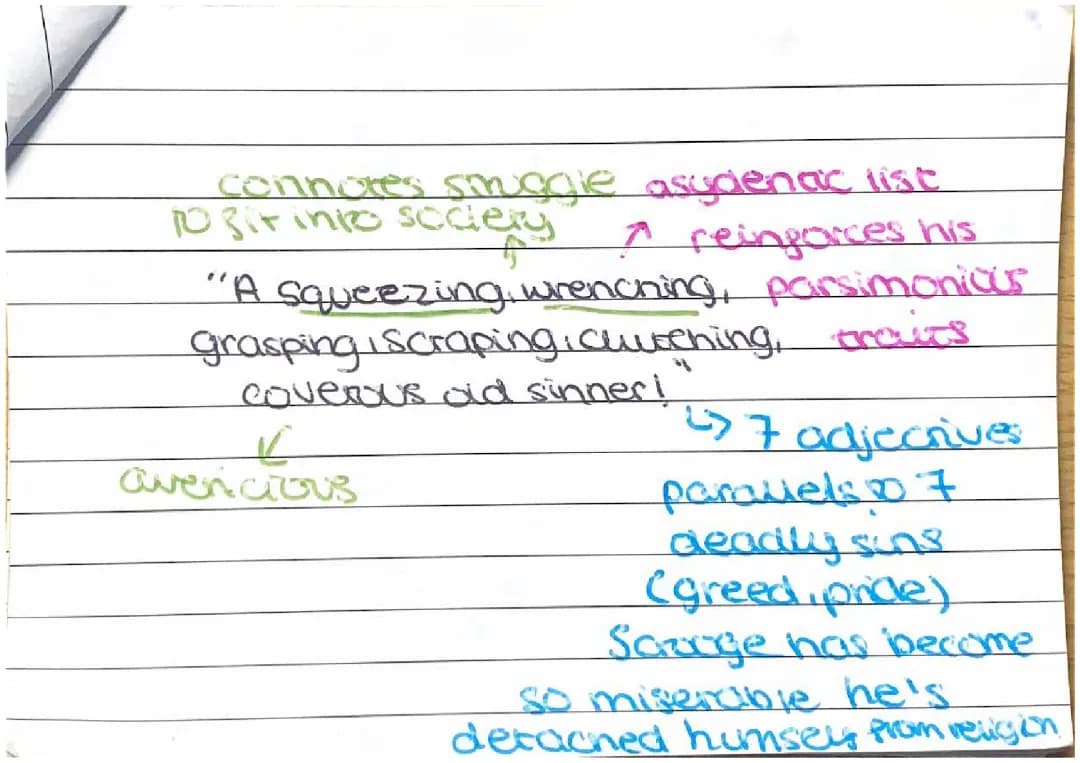 connotes struggle
to fit into society
asydenac list
reinforces his
parsimonious
traits
"A squeezing, wrenching,
grasping, scraping, clutching,
coverous old sinner!"
avericious
↳ 7 adjectives
parallels to 7
deadly sins
(greed, pride)
Scrooge has become
so miserable he's
detached humself from religion